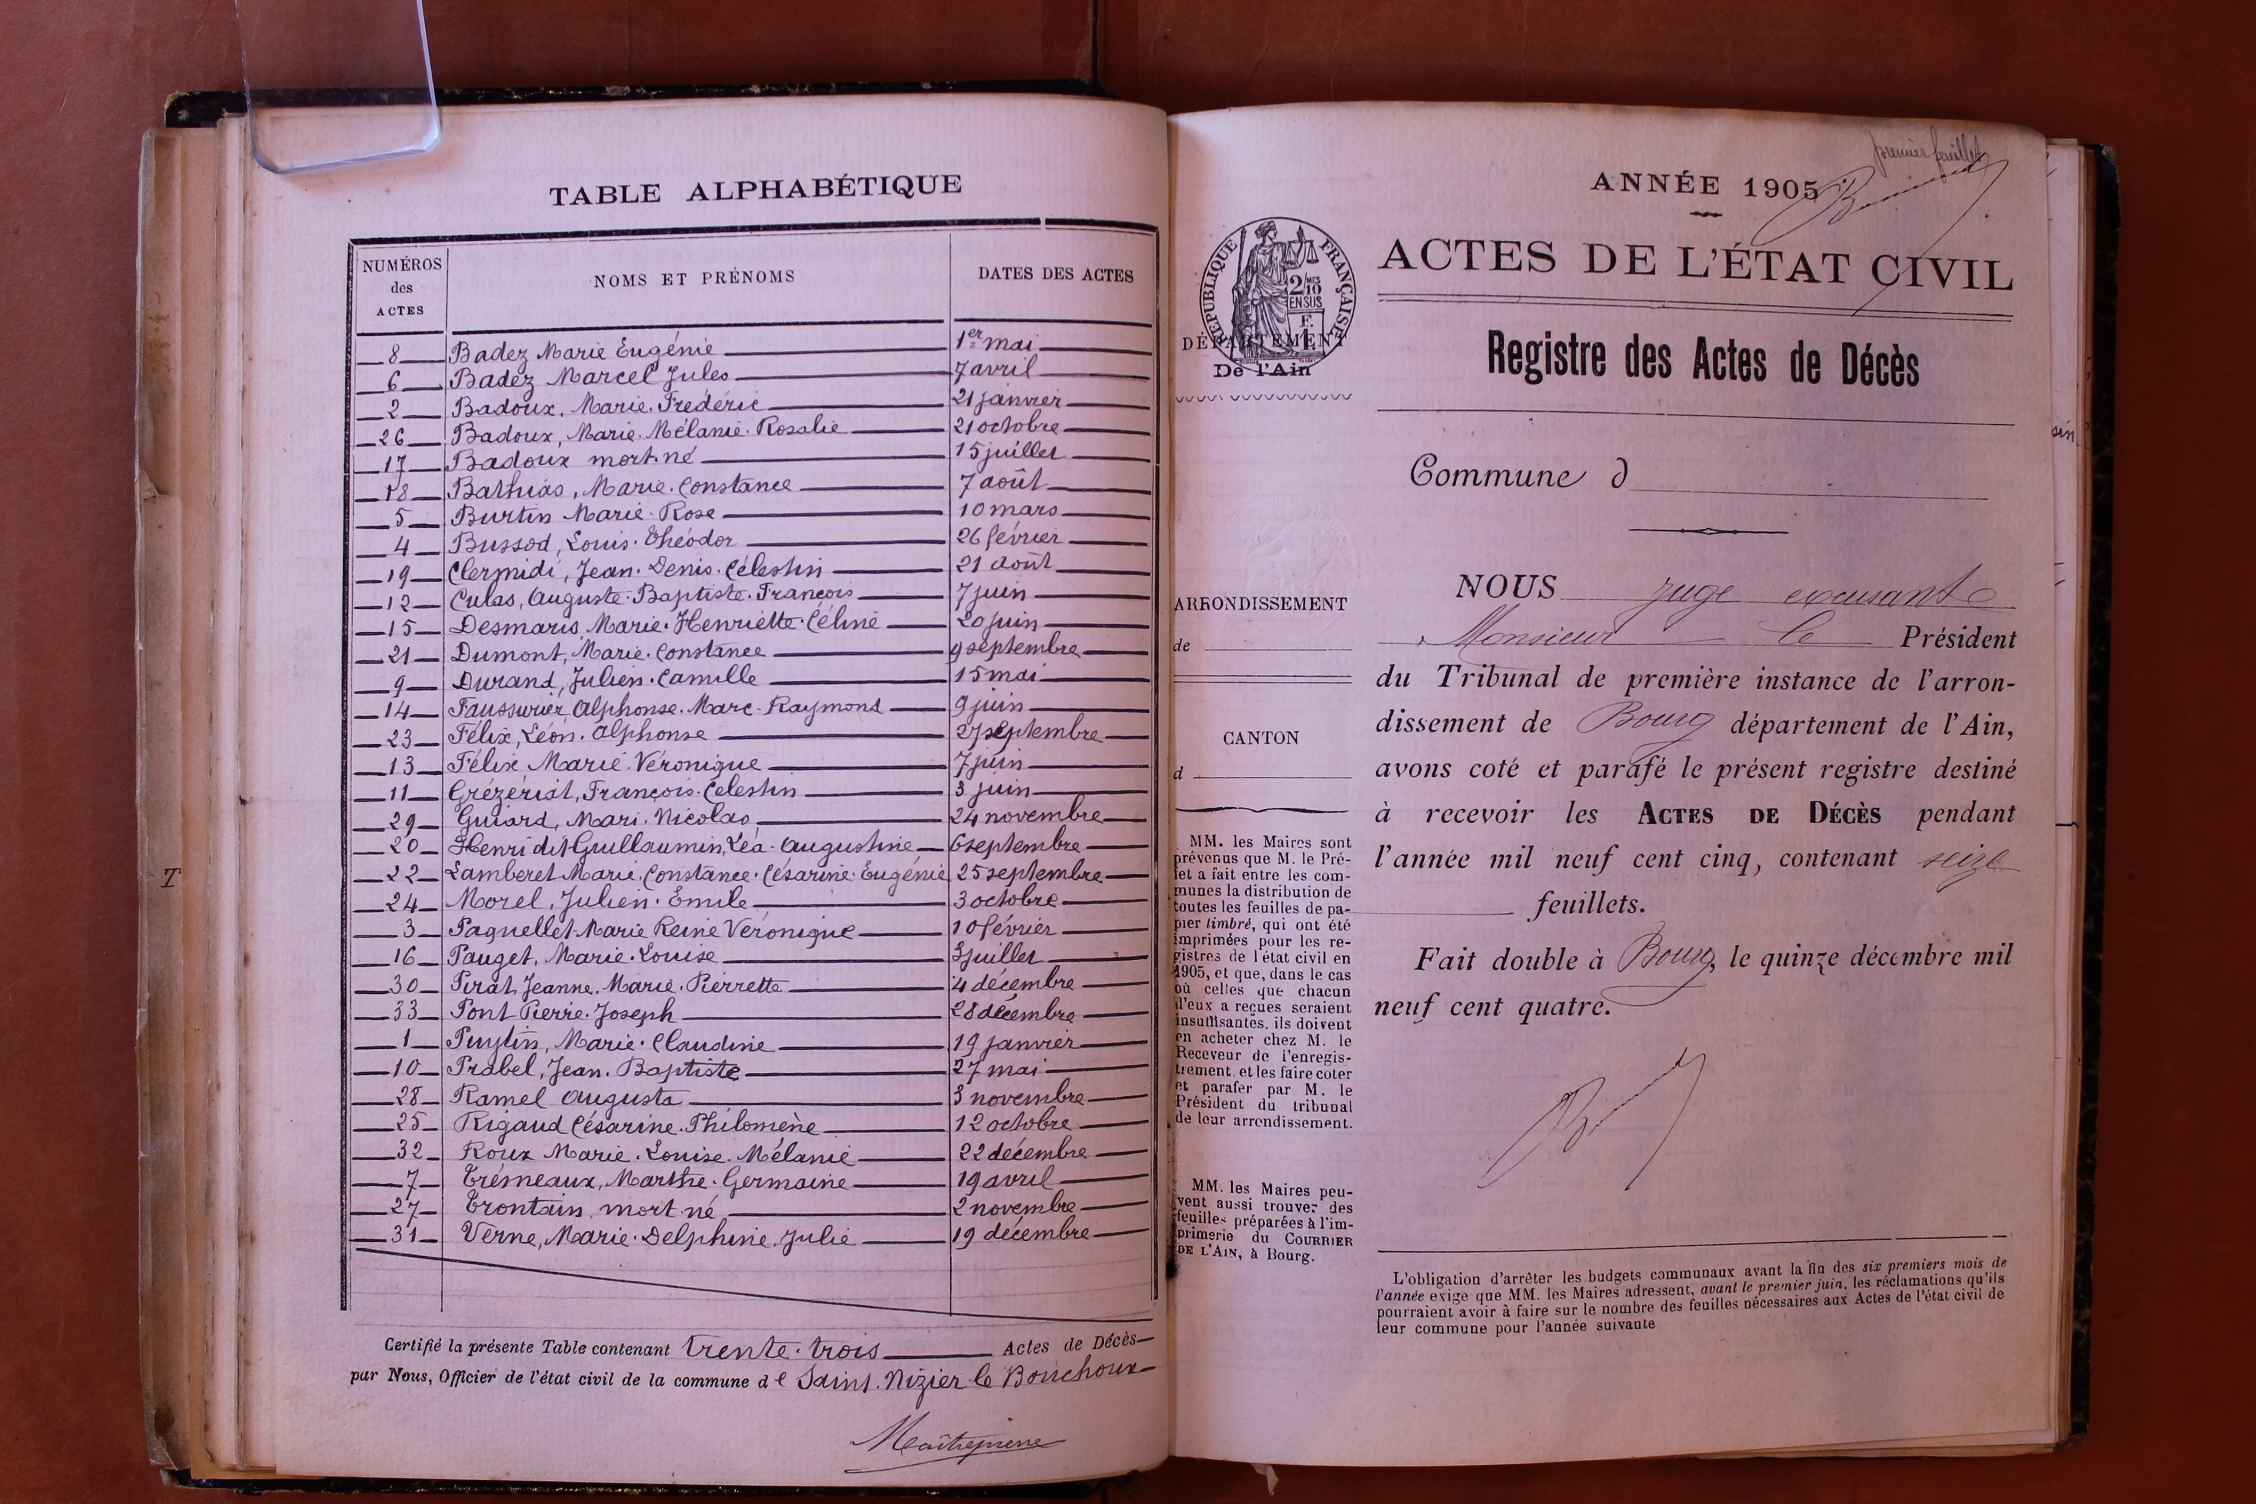 TABLE ALPHABÉTIQUE
NUMÉROS des ACTES NOMS ET PRÉNOMS DATES DES ACTES
8 Badez Marie Eugénie 1er mai
6 Badez Marcel Jules 7 avril
2 Badoux, Marie. Frédéric 21 janvier
26 Badoux, Marie. Mélanie. Rosalie 21 octobre
17 Badoux mort-né 15 juillet
18 Bathias, Marie. Constance 7 août
5 Burtin Marie-Rose 10 mars
4 Bussod, Louis. Théodor 26 février
19 Clermidi, Jean. Denis. Célestin 21 août
12 Culas, Auguste. Baptiste. François 7 juin
15 Desmaris, Marie. Henriette. Céline 20 juin
21 Dumont, Marie. Constance 9 septembre
9 Durand, Julien. Camille 15 mai
14 Faussurier, Alphonse. Marc. Raymond 9 juin
23 Félix, Léon. Alphonse 27 septembre
13 Félix, Marie. Véronique 7 juin
11 Grézériat, François. Célestin 3 juin
29 Guiard, Mari. Nicolas 24 novembre
20 Henri dit Guillaumin, Léa. Augustine 6 septembre
22 Lamberet Marie. Constance. Césarine. Eugénie 25 septembre
24 Morel, Julien. Emile 3 octobre
3 Paquellet Marie Reine Véronique 10 février
16 Pauget, Marie. Louise 3 juillet
30 Pirat, Jeanne. Marie. Pierrette 4 décembre
33 Pont Pierre. Joseph 28 décembre
1 Puytin, Marie. Claudine 19 janvier
10 Prabel, Jean. Baptiste 27 mai
28 Ramel Augusta 3 novembre
25 Rigaud Césarine. Philomène 12 octobre
32 Roux Marie. Louise. Mélanie 22 décembre
7 Trémeaux, Marthe. Germaine 19 avril
27 Trontain mort né 2 novembre
31 Verne, Marie. Delphine. Julie 19 décembre
Certifié la présente Table contenant trente-trois Actes de Décès
par Nous, Officier de l'état civil de la commune de Saint. Nizier le Bouchoux
premier feuillet
ANNÉE 1905
ACTES DE L'ÉTAT CIVIL
RÉPUBLIQUE FRANÇAISE
2/10 EN SUS
DÉPARTEMENT
De l'Ain
Registre des Actes de Décès
Commune d
ARRONDISSEMENT
de
CANTON
d
MM. les Maires sont
prévenus que M. le Pré-
fet a fait entre les com-
munes la distribution de
toutes les feuilles de pa-
pier timbré, qui ont été
imprimées pour les re-
gistres de l'état civil en
1905, et que, dans le cas
où celles que chacun
d'eux a reçues seraient
insuffisantes, ils doivent
en acheter chez M. le
Receveur de l'enregis-
trement, et les faire coter
et parafer par M. le
Président du tribunal
de leur arrondissement.
MM. les Maires peu-
vent aussi trouver des
feuilles préparées à l'im-
primerie du COURRIER
DE L'AIN, à Bourg.
NOUS juge
Monsieur le Président
du Tribunal de première instance de l'arron-
dissement de Bourg département de l'Ain,
avons coté et parafé le présent registre destiné
à recevoir les ACTES DE DÉCÈS pendant
l'année mil neuf cent cinq, contenant seize
feuillets.
Fait double à Bourg, le quinze décembre mil
neuf cent quatre.
L'obligation d'arrêter les budgets communaux avant la fin des six premiers mois de
l'année exige que MM. les Maires adressent, avant le premier juin, les réclamations qu'ils
pourraient avoir à faire sur le nombre des feuilles nécessaires aux Actes de l'état civil de
leur commune pour l'année suivante